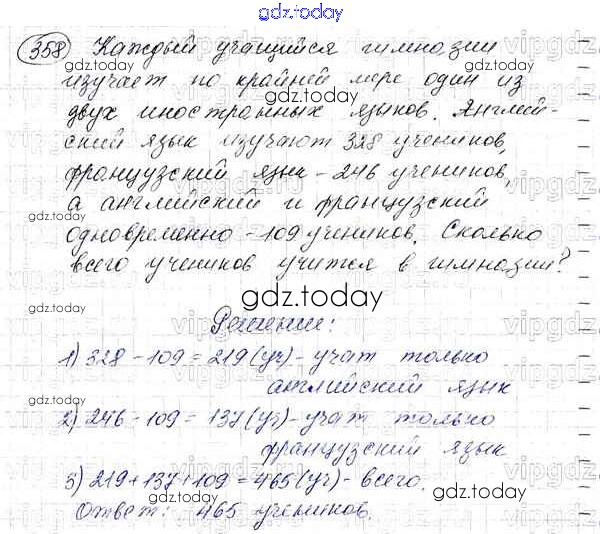 gdz.today
358 Каждый учащийся гимназии
изучает по крайней мере один из
двух иностранных языков. Англий-
ский язык изучают 328 учеников,
французский язык - 246 учеников,
а английский и французский
одновременно - 109 учеников. Сколько
всего учеников учится в гимназии?
gdz.today
Решение:
1) 328 - 109 = 219 (уч) - учат только
английский язык
2) 246 - 109 = 137 (уч) - учат только
французский язык
3) 219 + 137 + 109 = 465 (уч) - всего.
Ответ: 465 учеников.
gdz.today